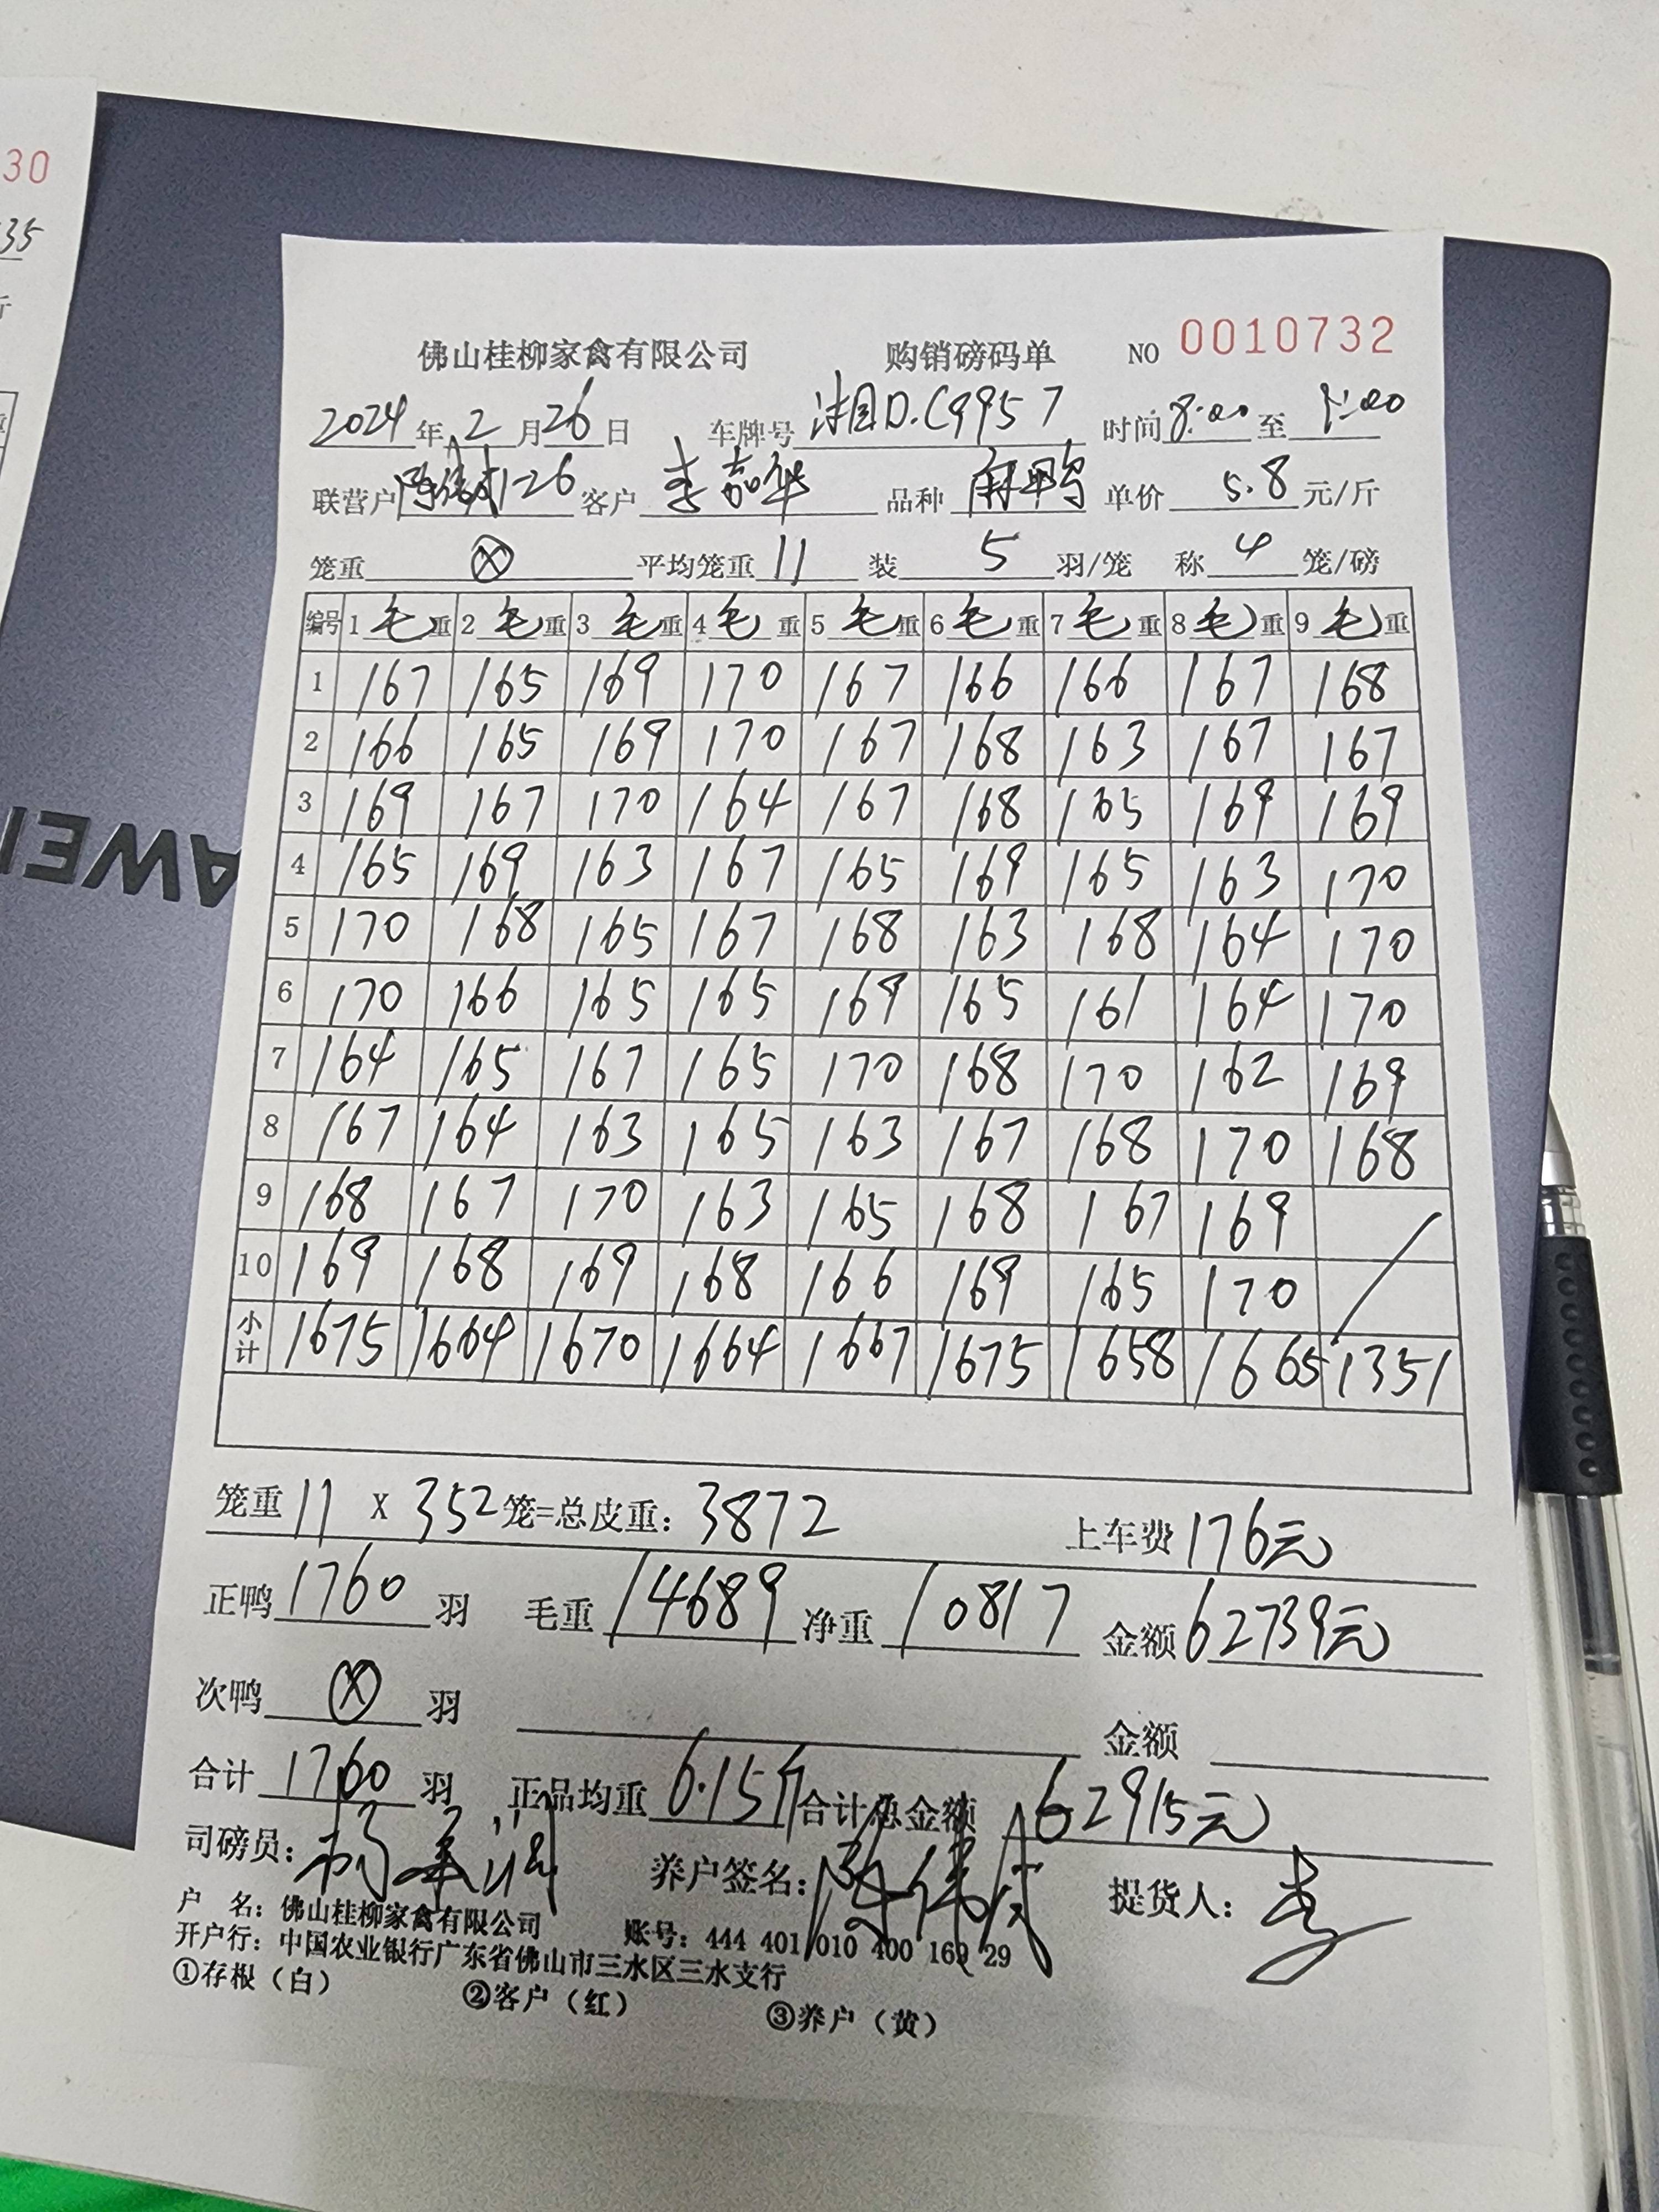 30
35
斤
AWEI
佛山桂柳家禽有限公司 购销磅码单 NO 0010732
2024年2月26日 车牌号 湘D.C9957 时间8:00至9:00
联营户 1-26 客户 李嘉华 品种 麻鸭 单价 5.8 元/斤
笼重 ⊗ 平均笼重 11 装 5 羽/笼 称 4 笼/磅
编号 1 毛重 2 毛重 3 毛重 4 毛重 5 毛重 6 毛重 7 毛重 8 毛重 9 毛重
1 167 165 169 170 167 166 166 167 168
2 166 165 169 170 167 168 163 167 167
3 169 167 170 164 167 168 165 169 169
4 165 169 163 167 165 169 165 163 170
5 170 168 165 167 168 163 168 164 170
6 170 166 165 165 169 165 161 164 170
7 164 165 167 165 170 168 170 162 169
8 167 164 163 165 163 167 168 170 168
9 168 167 170 163 165 168 167 169
10 169 168 169 168 166 169 165 170 /
小计 1675 1664 1670 1664 1667 1675 1658 1665 1351
笼重 11 X 352 笼=总皮重: 3872 上车费 176元
正鸭 1760 羽 毛重 14689 净重 10817 金额 62739元
次鸭 ⊗ 羽 金额
合计 1760 羽 正品均重 6.15斤 合计总金额 62915元
司磅员: 养户签名: 提货人: 李
户 名: 佛山桂柳家禽有限公司 账号: 444 401 010 400 169 29
开户行: 中国农业银行广东省佛山市三水区三水支行
①存根（白） ②客户（红） ③养户（黄）